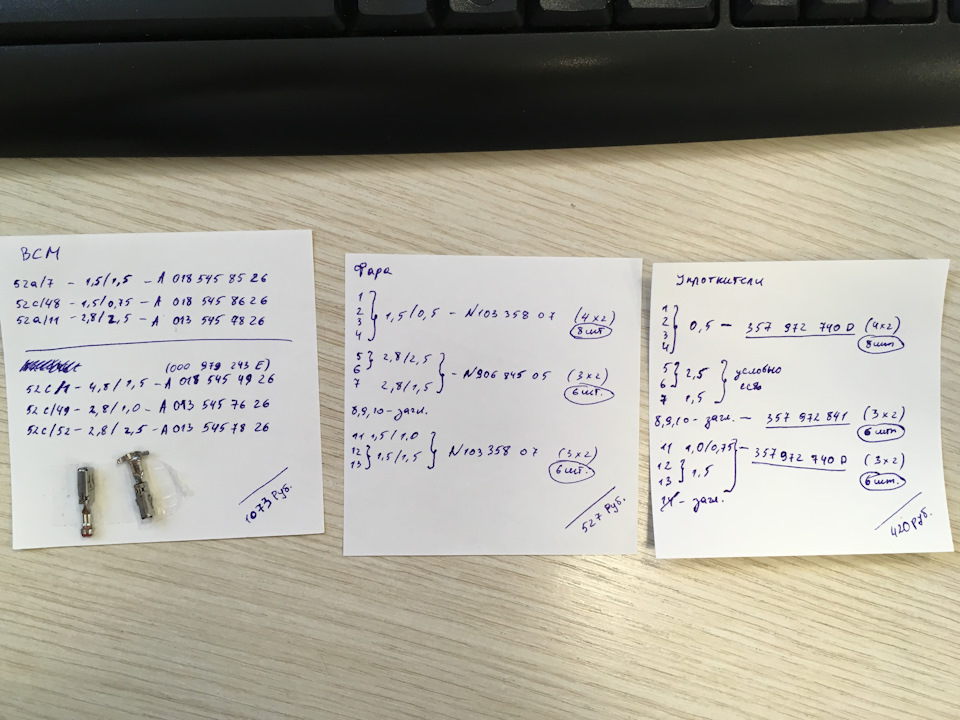 BCM
52a/7 - 1,5/1,5 - A 018 545 85 26
52c/48 - 1,5/0,75 - A 018 545 86 26
52a/11 - 2,8/2,5 - A 013 545 78 26
(000 979 243 E)
52c/1 - 4,8/1,5 - A 018 545 49 26
52c/49 - 2,8/1,0 - A 013 545 76 26
52c/52 - 2,8/2,5 - A 013 545 78 26
1073 руб.
Фара
1
2
3
4
1,5/0,5 - N 103 358 07 (4x2)
8 шт
5
6
2,8/2,5
7 2,8/1,5
- N 906 845 05 (3x2)
6 шт.
8,9,10 - загл.
11 1,5/1,0
12
13
1,5/1,5
N 103 358 07 (3x2)
6 шт.
527 руб.
Уплотнители
1
2
3
4
0,5 - 357 972 740 D (4x2)
8 шт
5
6
2,5
7 1,5
условно
8,9,10 - загл. - 357 972 841 (3x2)
6 шт
11 1,0/0,75
12
13
1,5
- 357 972 740 D (3x2)
6 шт.
14 - загл.
420 руб.